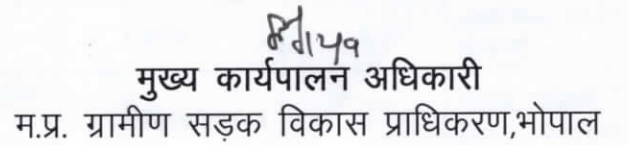 मुख्य कार्यपालन अधिकारी
म.प्र. ग्रामीण सड़क विकास प्राधिकरण,भोपाल